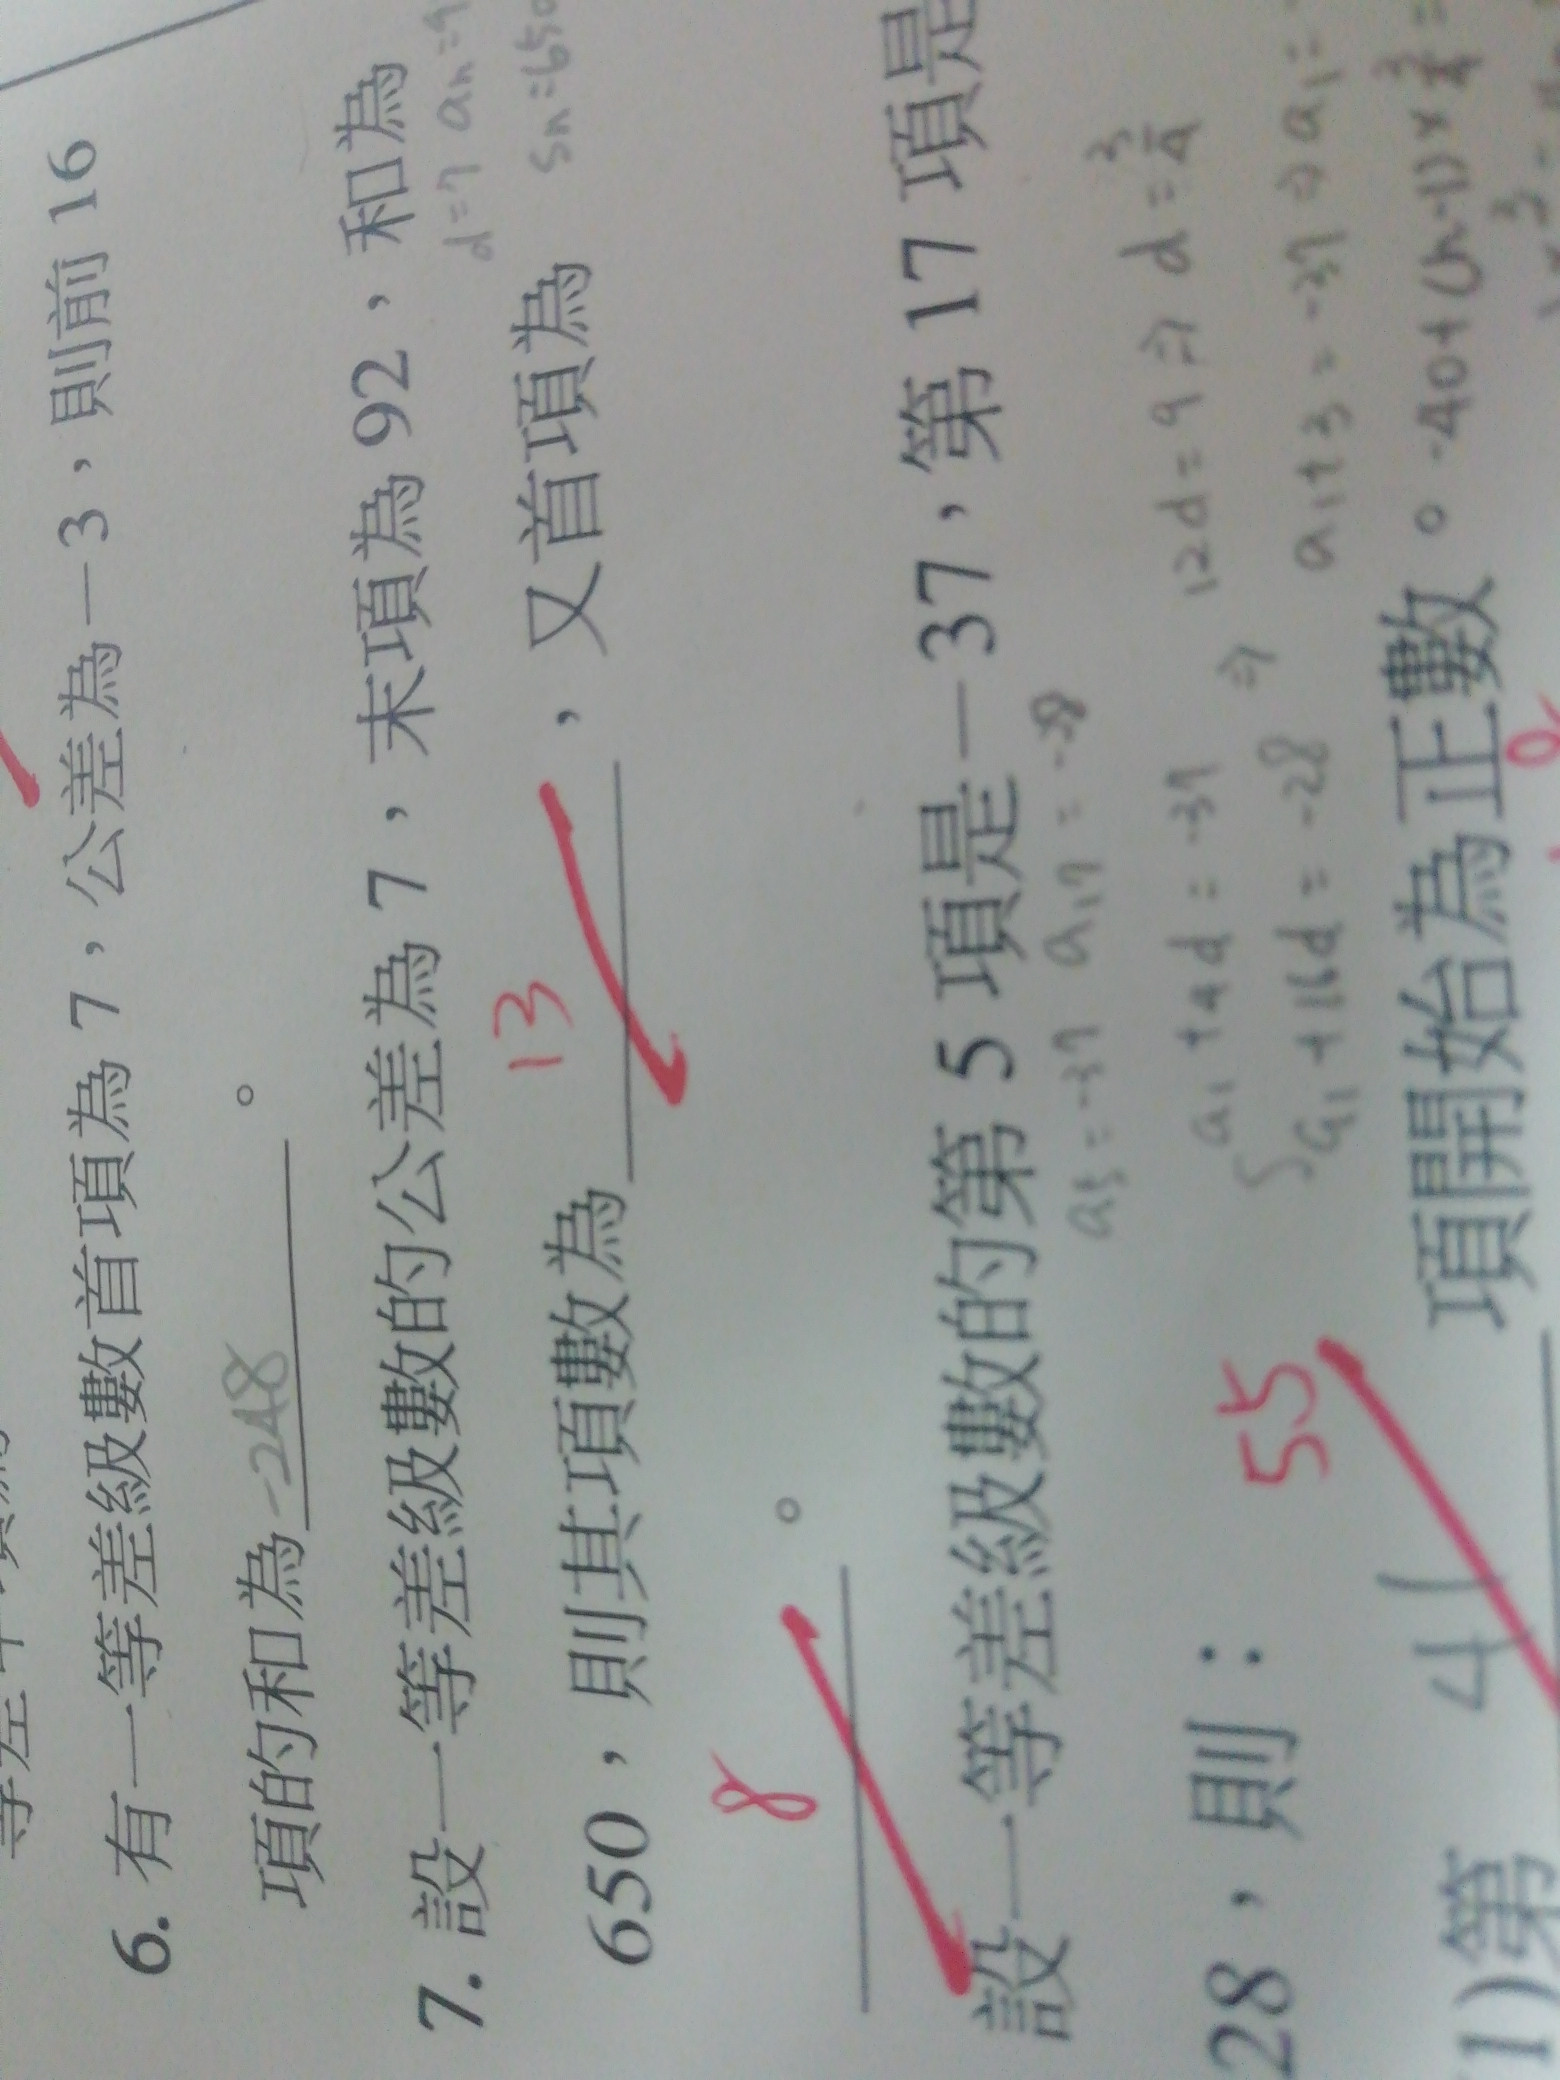 6. 有一等差級數首項為 7，公差為－3，則前 16
項的和為 -248 。
7. 設一等差級數的公差為 7，末項為 92，和為
d=7 an=9
13 Sn=650
650，則其項數為 ，又首項為
8 。
設一等差級數的第 5 項是－37，第 17 項是
a5=-37 a17=-28
28，則：
a1+4d=-37
a1+16d=-28
⇒ 12d=9 ⇒ d=3/4
a1+3=-37 ⇒ a1=
55
(1)第 41 項開始為正數。 -40+(n-1)×3/4=